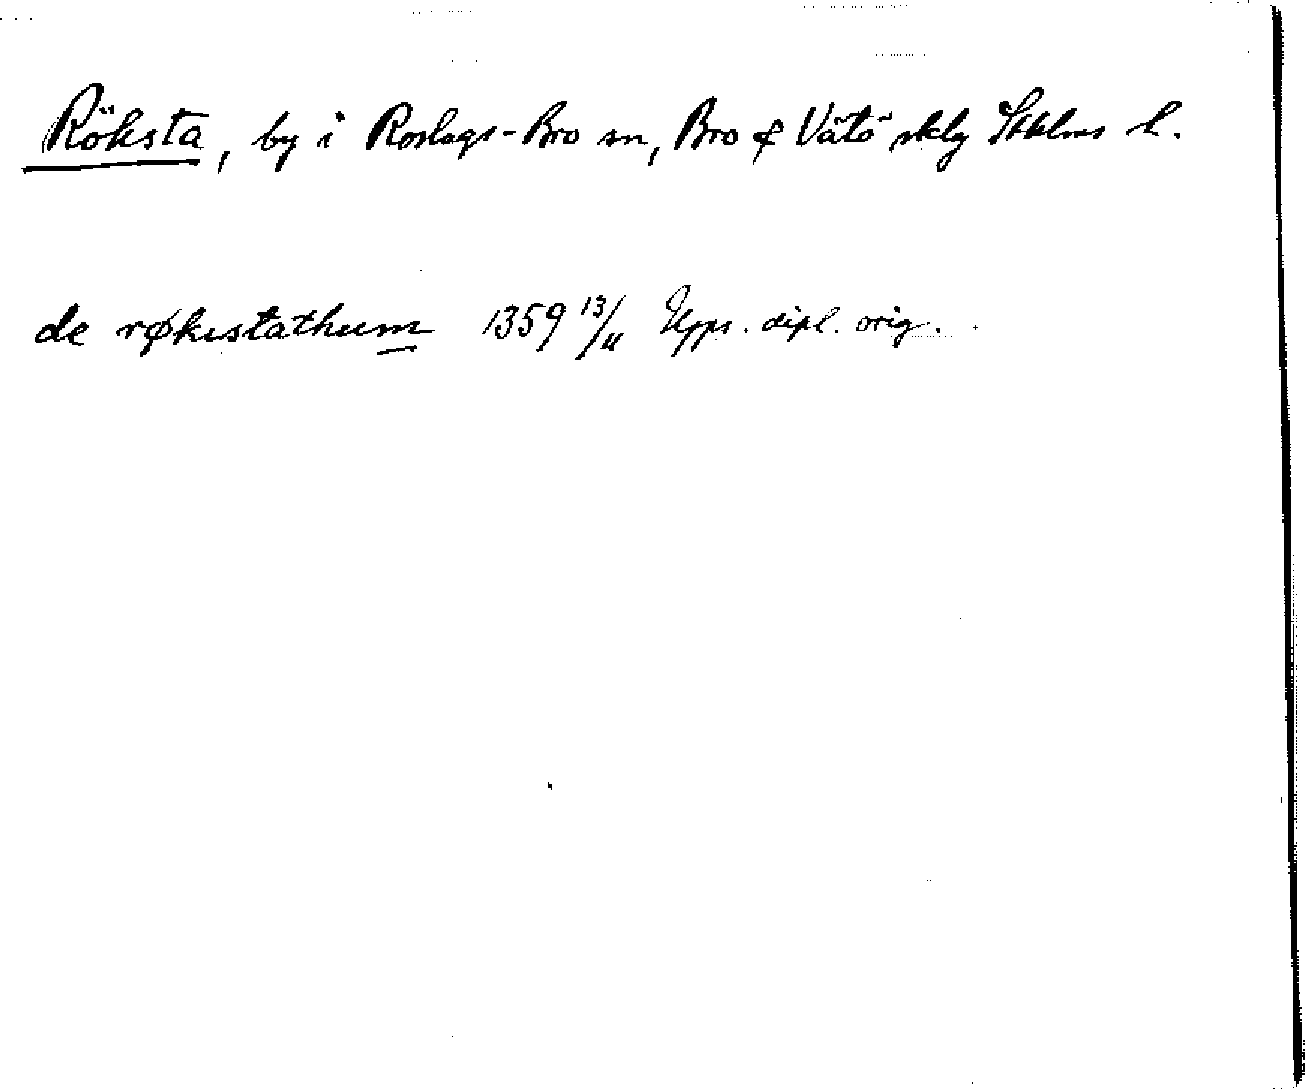 Röksta, by i Roslags-Bro sn, Bro & Vätö sklg Sthlms l.
de røkistathum 1359 13/11 Upps. dipl. orig.